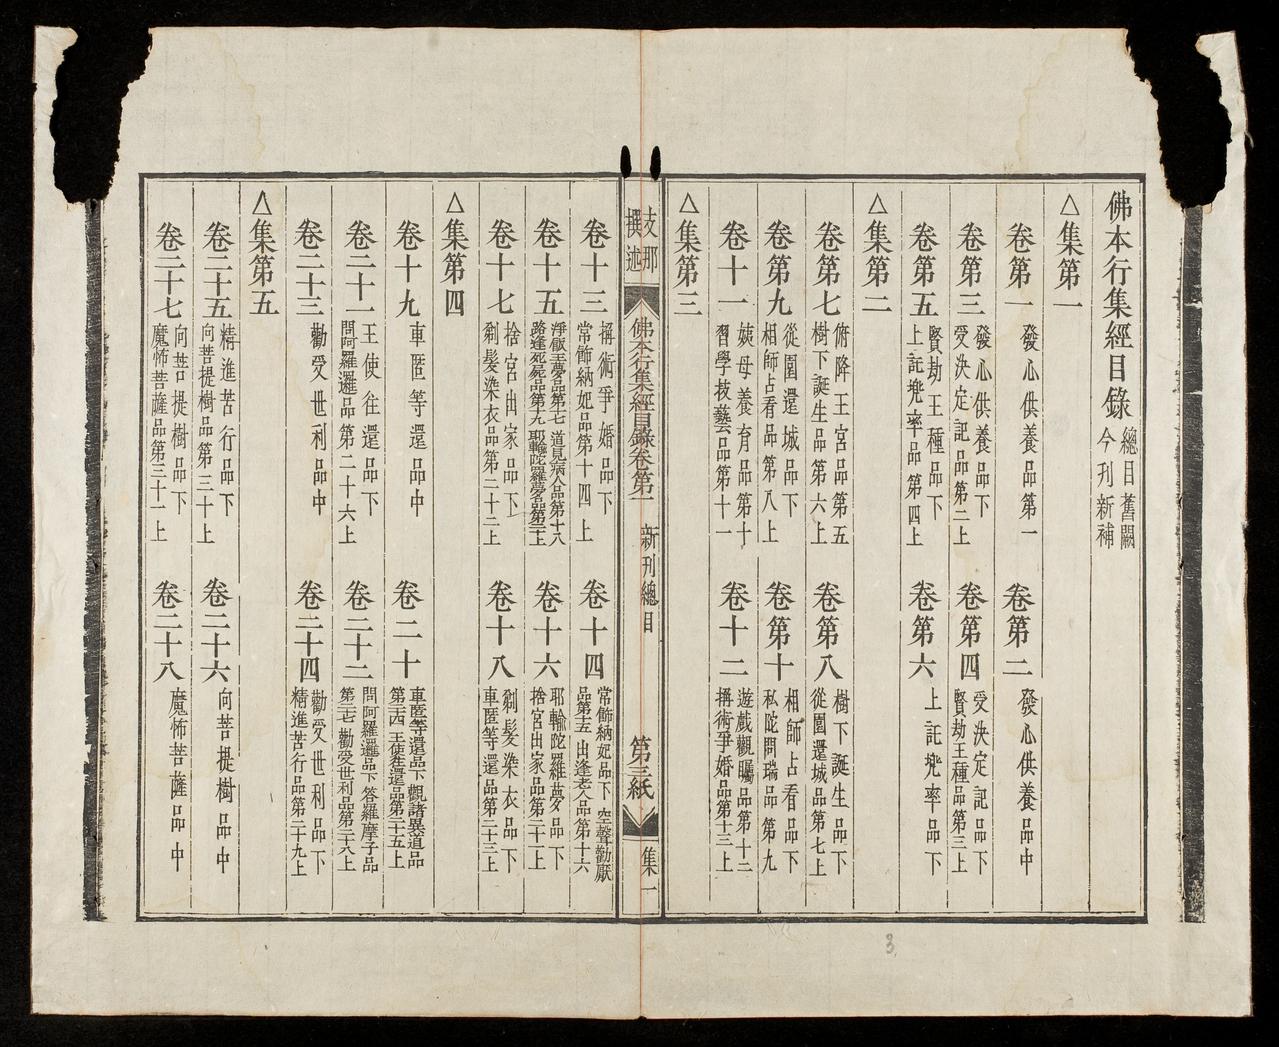 佛本行集經目錄 總目舊闕 今刊新補
△集第一
卷第一 發心供養品第一 卷第二 發心供養品中
卷第三 發心供養品下 受決定記品第二上 卷第四 受決定記品下 賢劫王種品第三上
卷第五 賢劫王種品下 上託兜率品第四上 卷第六 上託兜率品下
△集第二
卷第七 俯降王宮品第五 樹下誕生品第六上 卷第八 樹下誕生品下 從園還城品第七上
卷第九 從園還城品下 相師占看品第八上 卷第十 相師占看品下 私陀問瑞品第九
卷十一 姨母養育品第十 習學技藝品第十一 卷十二 遊戲觀矚品第十二 捔術爭婚品第十三上
△集第三
支那撰述 佛本行集經目錄卷第一 新刊總目 第三紙 集一
卷十三 捔術爭婚品下 常飾納妃品第十四上 卷十四 常飾納妃品下 空聲勸厭品第十五 出逢老人品第十六
卷十五 淨飯王夢品第十七 道見病人品第十八 路逢死屍品第十九 耶輸陀羅夢品第二十上 卷十六 耶輸陀羅夢品下 捨宮出家品第二十一上
卷十七 捨宮出家品下 剃髮染衣品第二十二上 卷十八 剃髮染衣品下 車匿等還品第二十三上
△集第四
卷十九 車匿等還品中 卷二十 車匿等還品下 觀諸異道品第二十四 王使往還品第二十五上
卷二十一 王使往還品下 問阿羅邏品第二十六上 卷二十二 問阿羅邏品下 答羅摩子品第二十七 勸受世利品第二十八上
卷二十三 勸受世利品中 卷二十四 勸受世利品下 精進苦行品第二十九上
△集第五
卷二十五 精進苦行品下 向菩提樹品第三十上 卷二十六 向菩提樹品中
卷二十七 向菩提樹品下 魔怖菩薩品第三十一上 卷二十八 魔怖菩薩品中
3